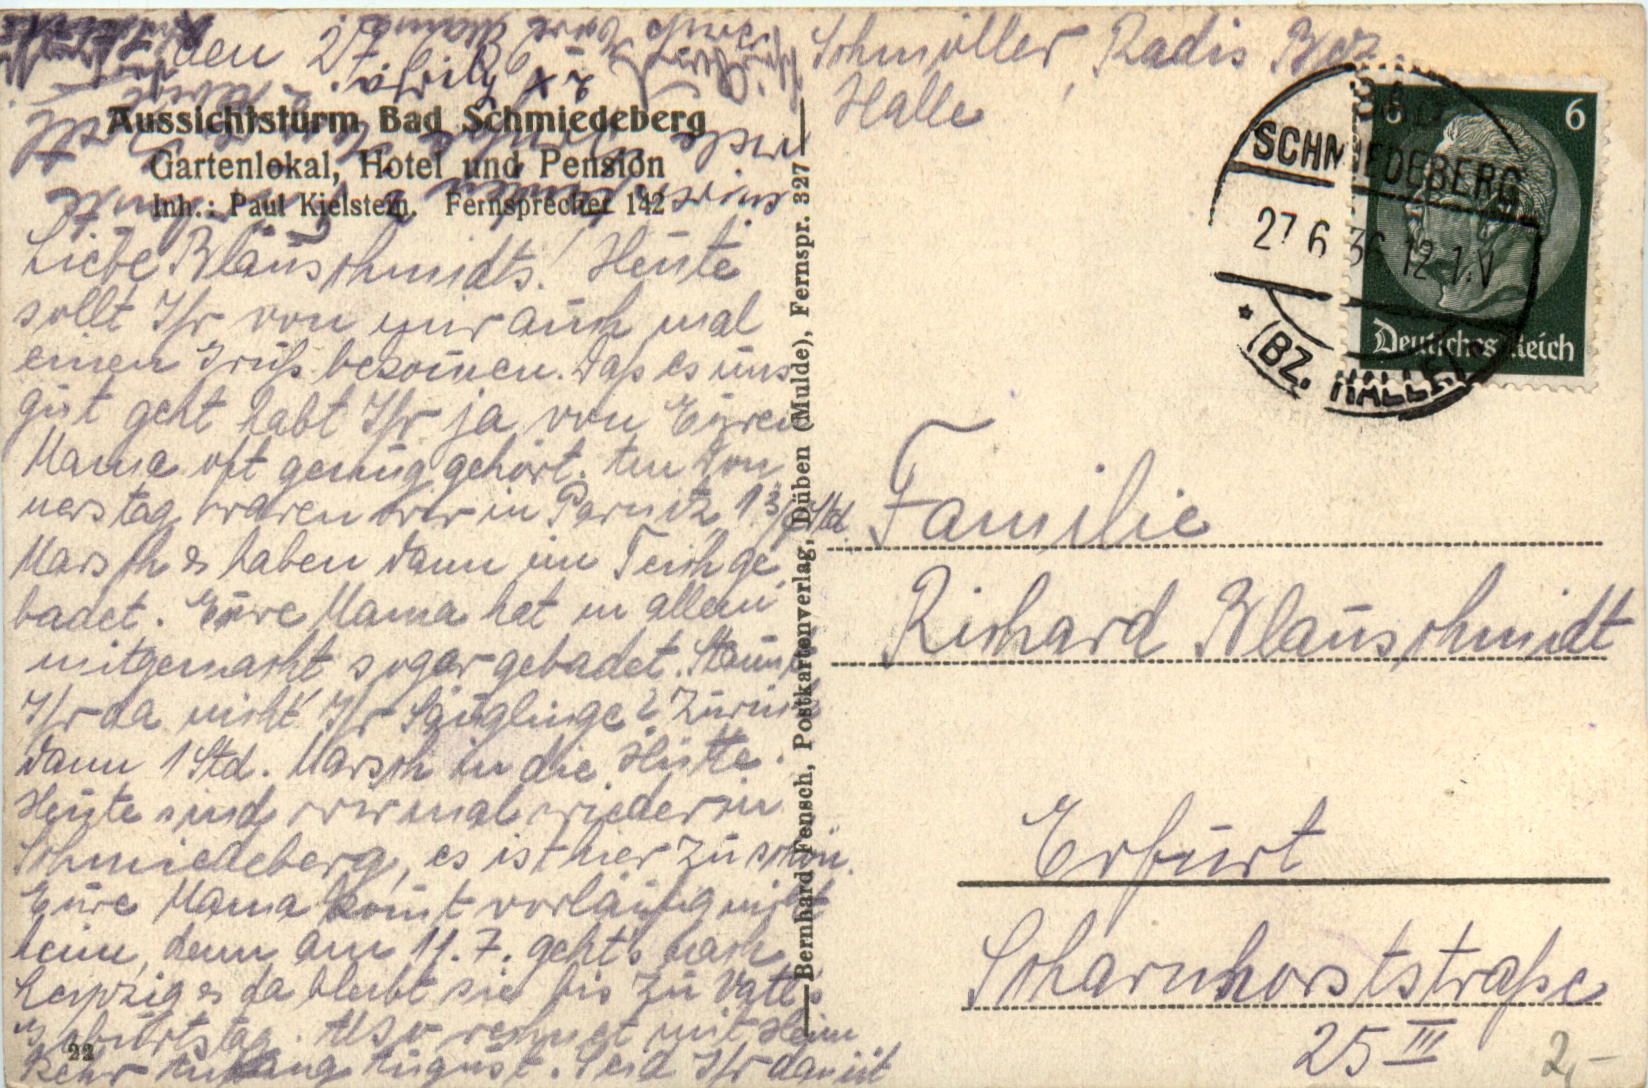 den 27. 6. 36
Aussichtsturm Bad Schmiedeberg
Gartenlokal, Hotel und Pension
Inh.: Paul Kielstein. Fernsprecher 142
Liebe Blauschmidts! Heute
sollt Ihr von mir auch mal
einen Gruß bekomen. Daß es uns
gut geht habt Ihr ja von Eurer
Mama oft genug gehört. Am Don
nerstag waren wir in Pornitz, 1 3/4 Std.
Marsch & haben dann im Teich ge
badet. Eure Mama hat in allem
mitgemacht sogar gebadet. Staunt
Ihr da nicht Ihr Säuglinge? Zurück
dann 1 Std. Marsch in die Hütte.
Heute sind wir mal wieder in
Schmiedeberg, es ist hier zu schön.
Eure Mama komt vorläufig nicht
heim, denn am 11. 7. geht's nach
Leipzig & da bleibt sie bis zu Vatls
Geburtstag. Also rechnet mit Heim
kehr Anfang August. Seid Ihr damit
22
Bernhard Fensch, Postkartenverlag, Düben (Mulde), Fernspr. 327
Schmöller, Radis Bez.
Halle
6
Deutsches Reich
BAD
SCHMIEDEBERG
27 6 36 12-1 N
* (BZ. HALLE)
Familie
Richard Blauschmidt
Erfurt
Scharnhorststraße
25 III
2,-